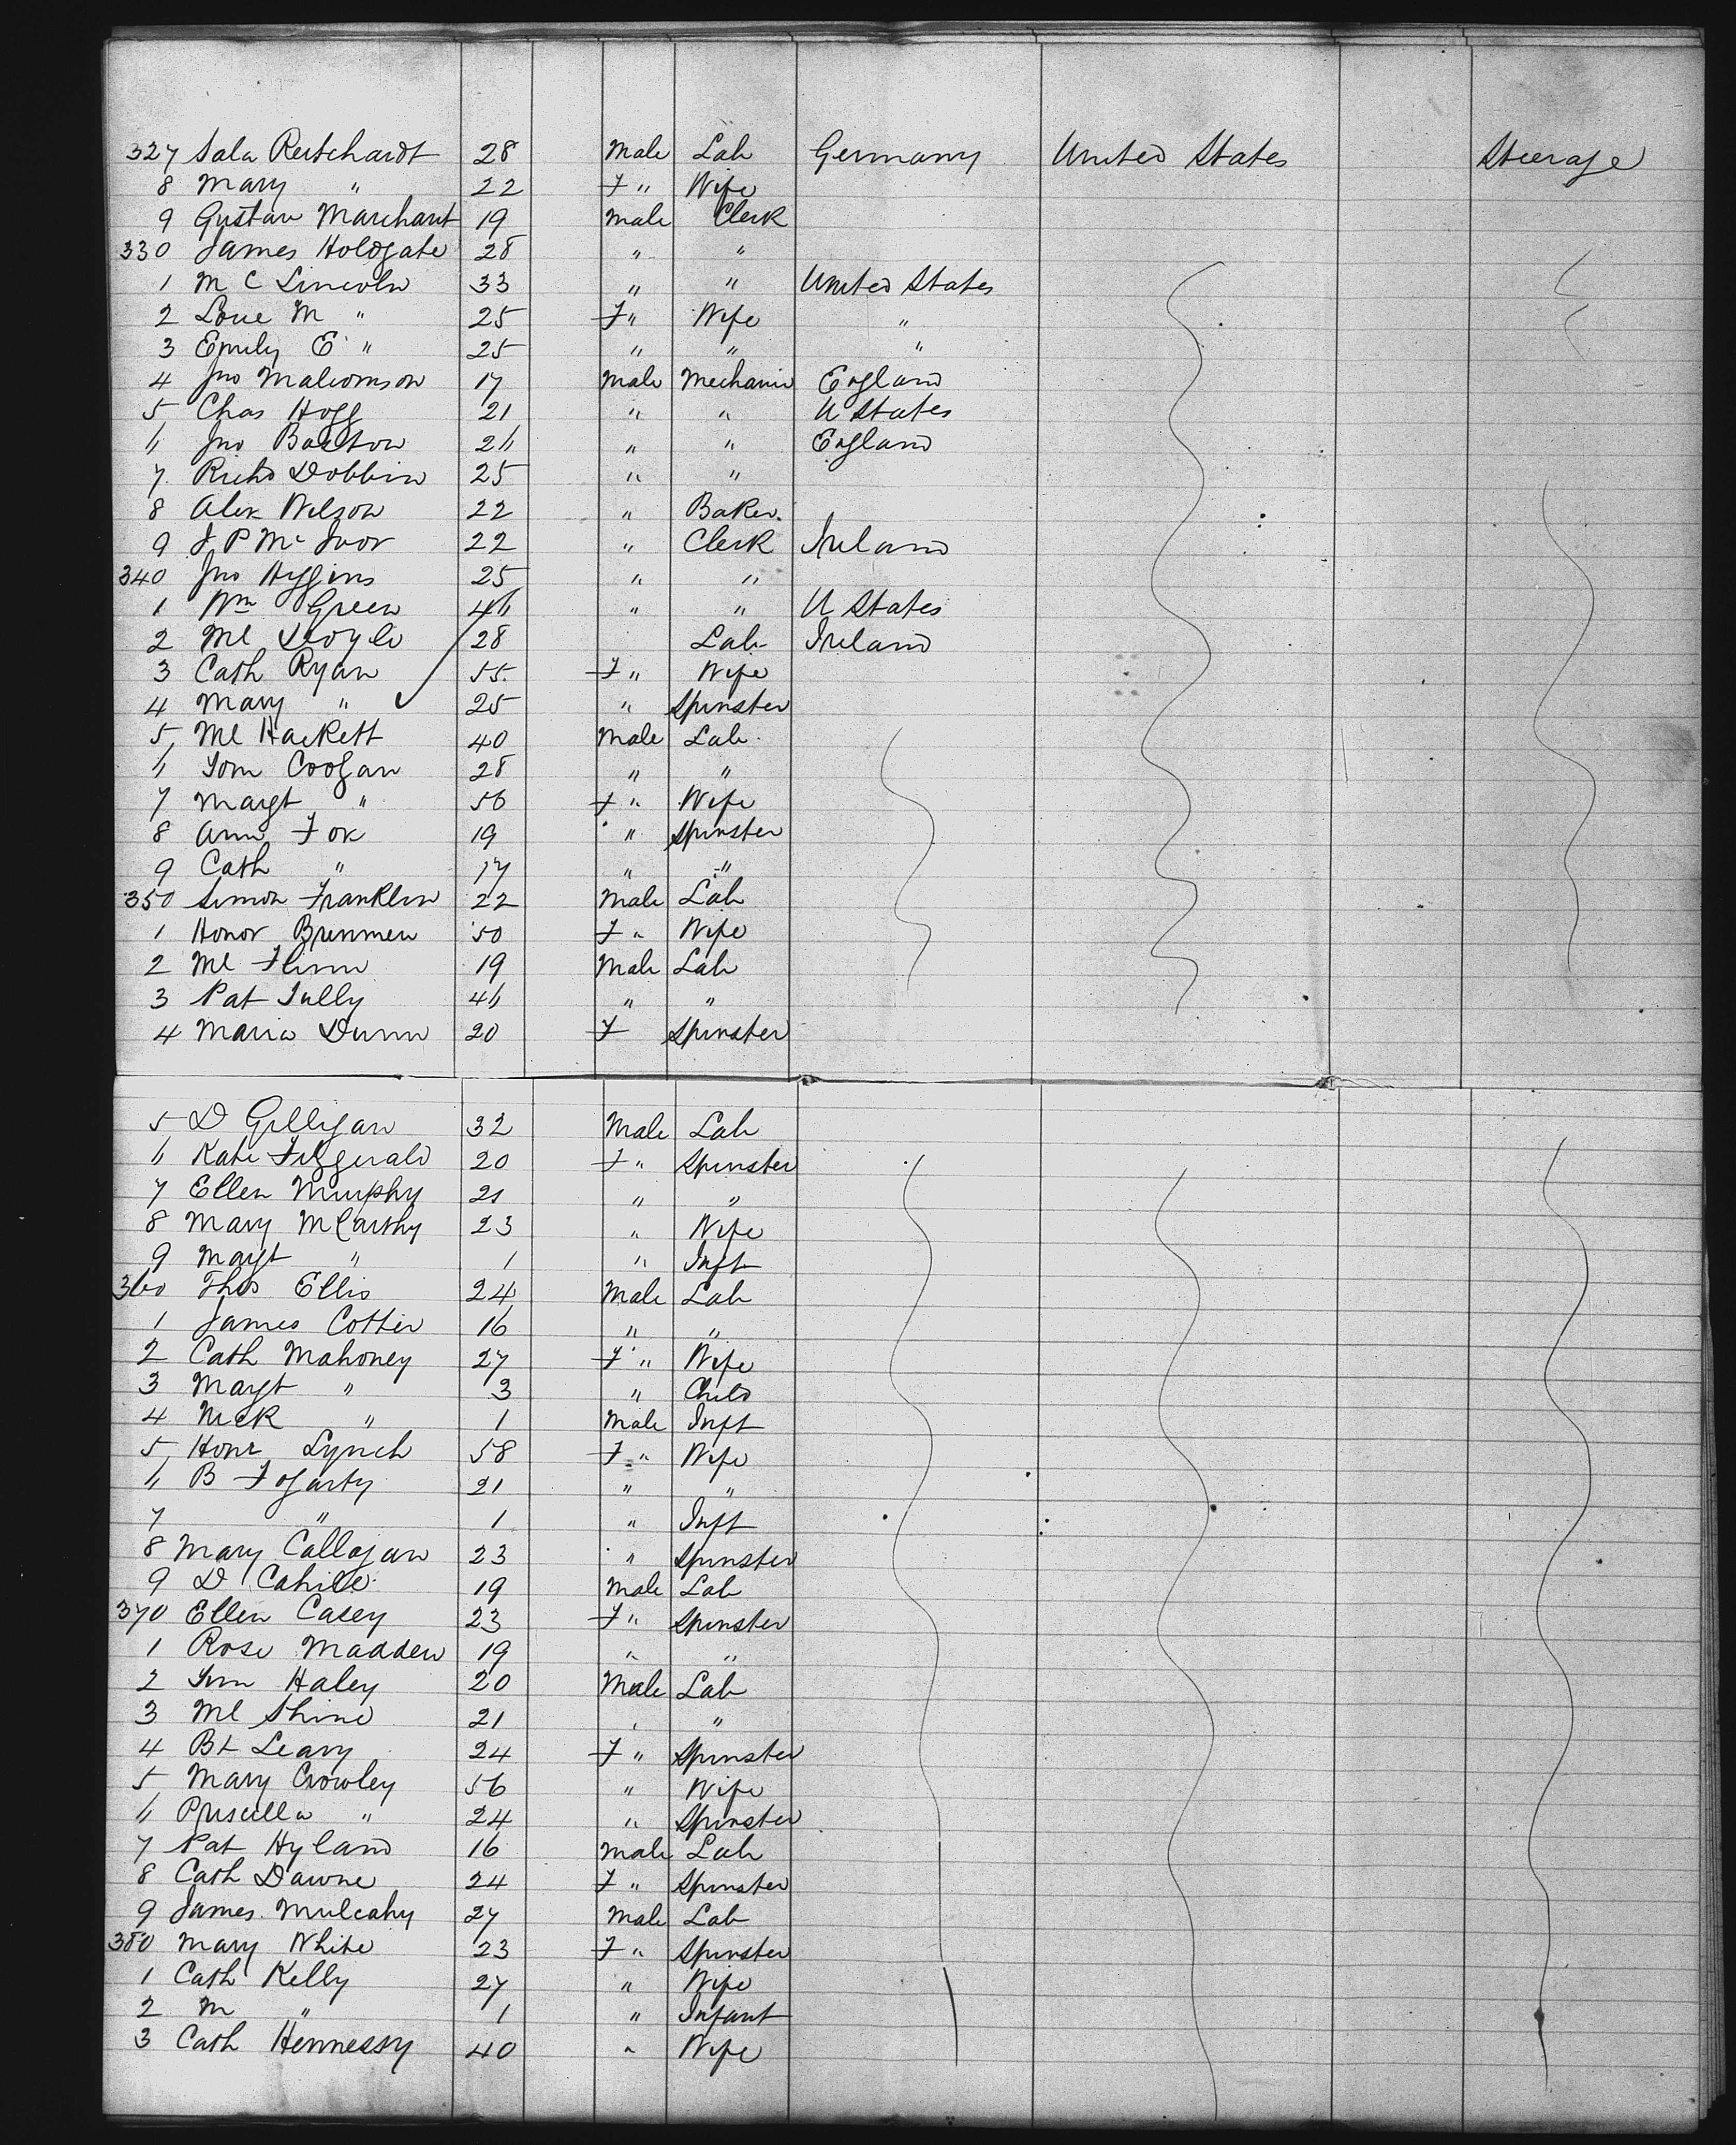 327 Sala Reitchardt 28 Male Lab Germany United States Steerage
8 Mary " 22 F " Wife
9 Gustav Marchant 19 Male Clerk
330 James Holdgate 28 " "
1 M C Lincoln 33 " " United States
2 Loue M " 25 F " Wife "
3 Emily E " 25 " " "
4 Jno Malcomson 17 Male Mechanic England
5 Chas Hogg 21 " " U States
6 Jno Barton 26 " " England
7 Richd Dobbin 25 " "
8 Alex Wilson 22 " Baker
9 J P McIvor 22 " Clerk Ireland
340 Jno Higgins 25 " "
1 Wm Green 46 " " U States
2 Ml 28 Lab Ireland
3 Cath Ryan 55 F " Wife
4 Mary " 25 " Spinster
5 Ml Hackett 40 Male Lab
6 Tom Coogan 28 " "
7 Margt " 56 F " Wife
8 Ann Fox 19 " Spinster
9 Cath " 17 " "
350 Simon Franklin 22 Male Lab
1 Honor Brenmen 50 F " Wife
2 Ml Flinn 19 Male Lab
3 Pat Tully 46 " "
4 Maria Dunn 20 F Spinster
5 D Gilligan 32 Male Lab
6 Kate Fitzgerald 20 F " Spinster
7 Ellen Murphy 21 " "
8 Mary McCarthy 23 " Wife
9 Margt " 1 " Inft
360 Thos Ellis 24 Male Lab
1 James Cotter 16 " "
2 Cath Mahoney 27 F " Wife
3 Margt " 3 " Child
4 Mck " 1 Male Inft
5 Honr Lynch 58 F " Wife
6 B Fogarty 21 " "
7 " 1 " Inft
8 Mary Callogan 23 " Spinster
9 D Cahill 19 Male Lab
370 Ellen Casey 23 F " Spinster
1 Rose Madden 19 " "
2 Tim Haley 20 Male Lab
3 Ml Shine 21 " "
4 Bt Leary 24 F " Spinster
5 Mary Crowley 56 " Wife
6 Priscilla " 24 " Spinster
7 Pat Hyland 16 Male Lab
8 Cath Dawne 24 F " Spinster
9 James Mulcahy 27 Male Lab
380 Mary White 23 F " Spinster
1 Cath Kelly 27 " Wife
2 M " 1 " Infant
3 Cath Hennessy 40 " Wife